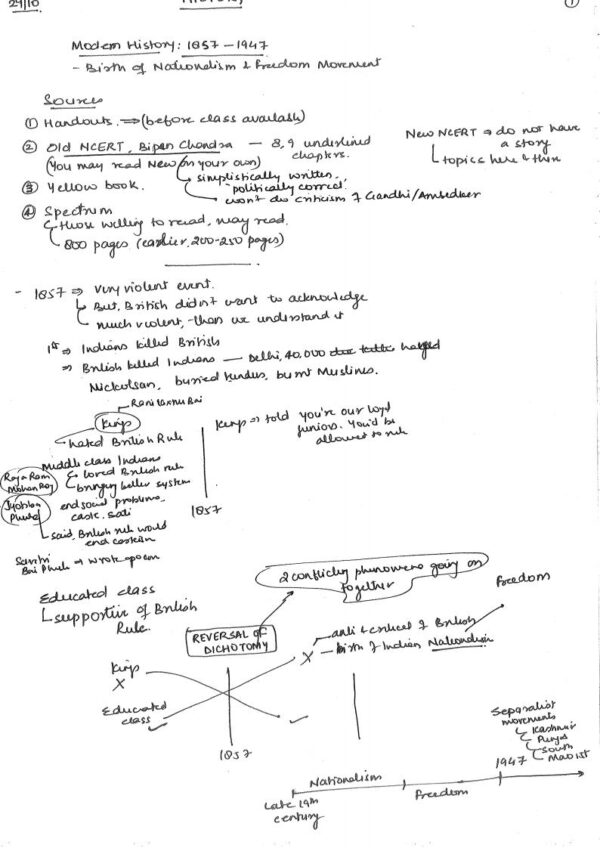 29/10
HISTORY
1
Modern History: 1857 – 1947
- Birth of Nationalism & Freedom Movement
Source
① Handouts ⇒ (before class available)
② Old NCERT, Bipan Chandra — 8, 9 underlined chapters.
(You may read New on your own)
simplistically written,
"politically correct"
won't do criticism of Gandhi/Ambedkar
New NCERT ⇒ do not have
a story
topics here & there
③ Yellow book.
④ Spectrum
those willing to read, may read.
800 pages (earlier, 200-250 pages)
- 1857 ⇒ very violent event.
But, British didn't want to acknowledge
much violent, than we understand it
1st ⇒ Indians killed British
⇒ British killed Indians — Delhi, 40,000 hanged
Nickolsan, buried Hindus, burnt Muslims.
Rani Laxmi Bai
Kings
hated British Rule
Kings ⇒ told you're our loyal
juniors. You'd be
allowed to rule
Middle class Indians
Raja Ram
Mohan Roy
loved British rule
bringing better system
Jyotiba
Phule
end social problems,
caste, sati
said, British rule would
end casteism
1857
Savitri
Bai Phule → wrote poem
Educated class
supportive of British
Rule.
2 conflicting phenomena going on
together
REVERSAL OF
DICHOTOMY
Freedom
anti & critical of British
X — birth of Indian Nationalism
Kings
X
Educated
class ✓
✓
1857
Separatist
movements
Kashmir
Punjab
South
Maoist
1947
Nationalism
Freedom
Late 19th
century